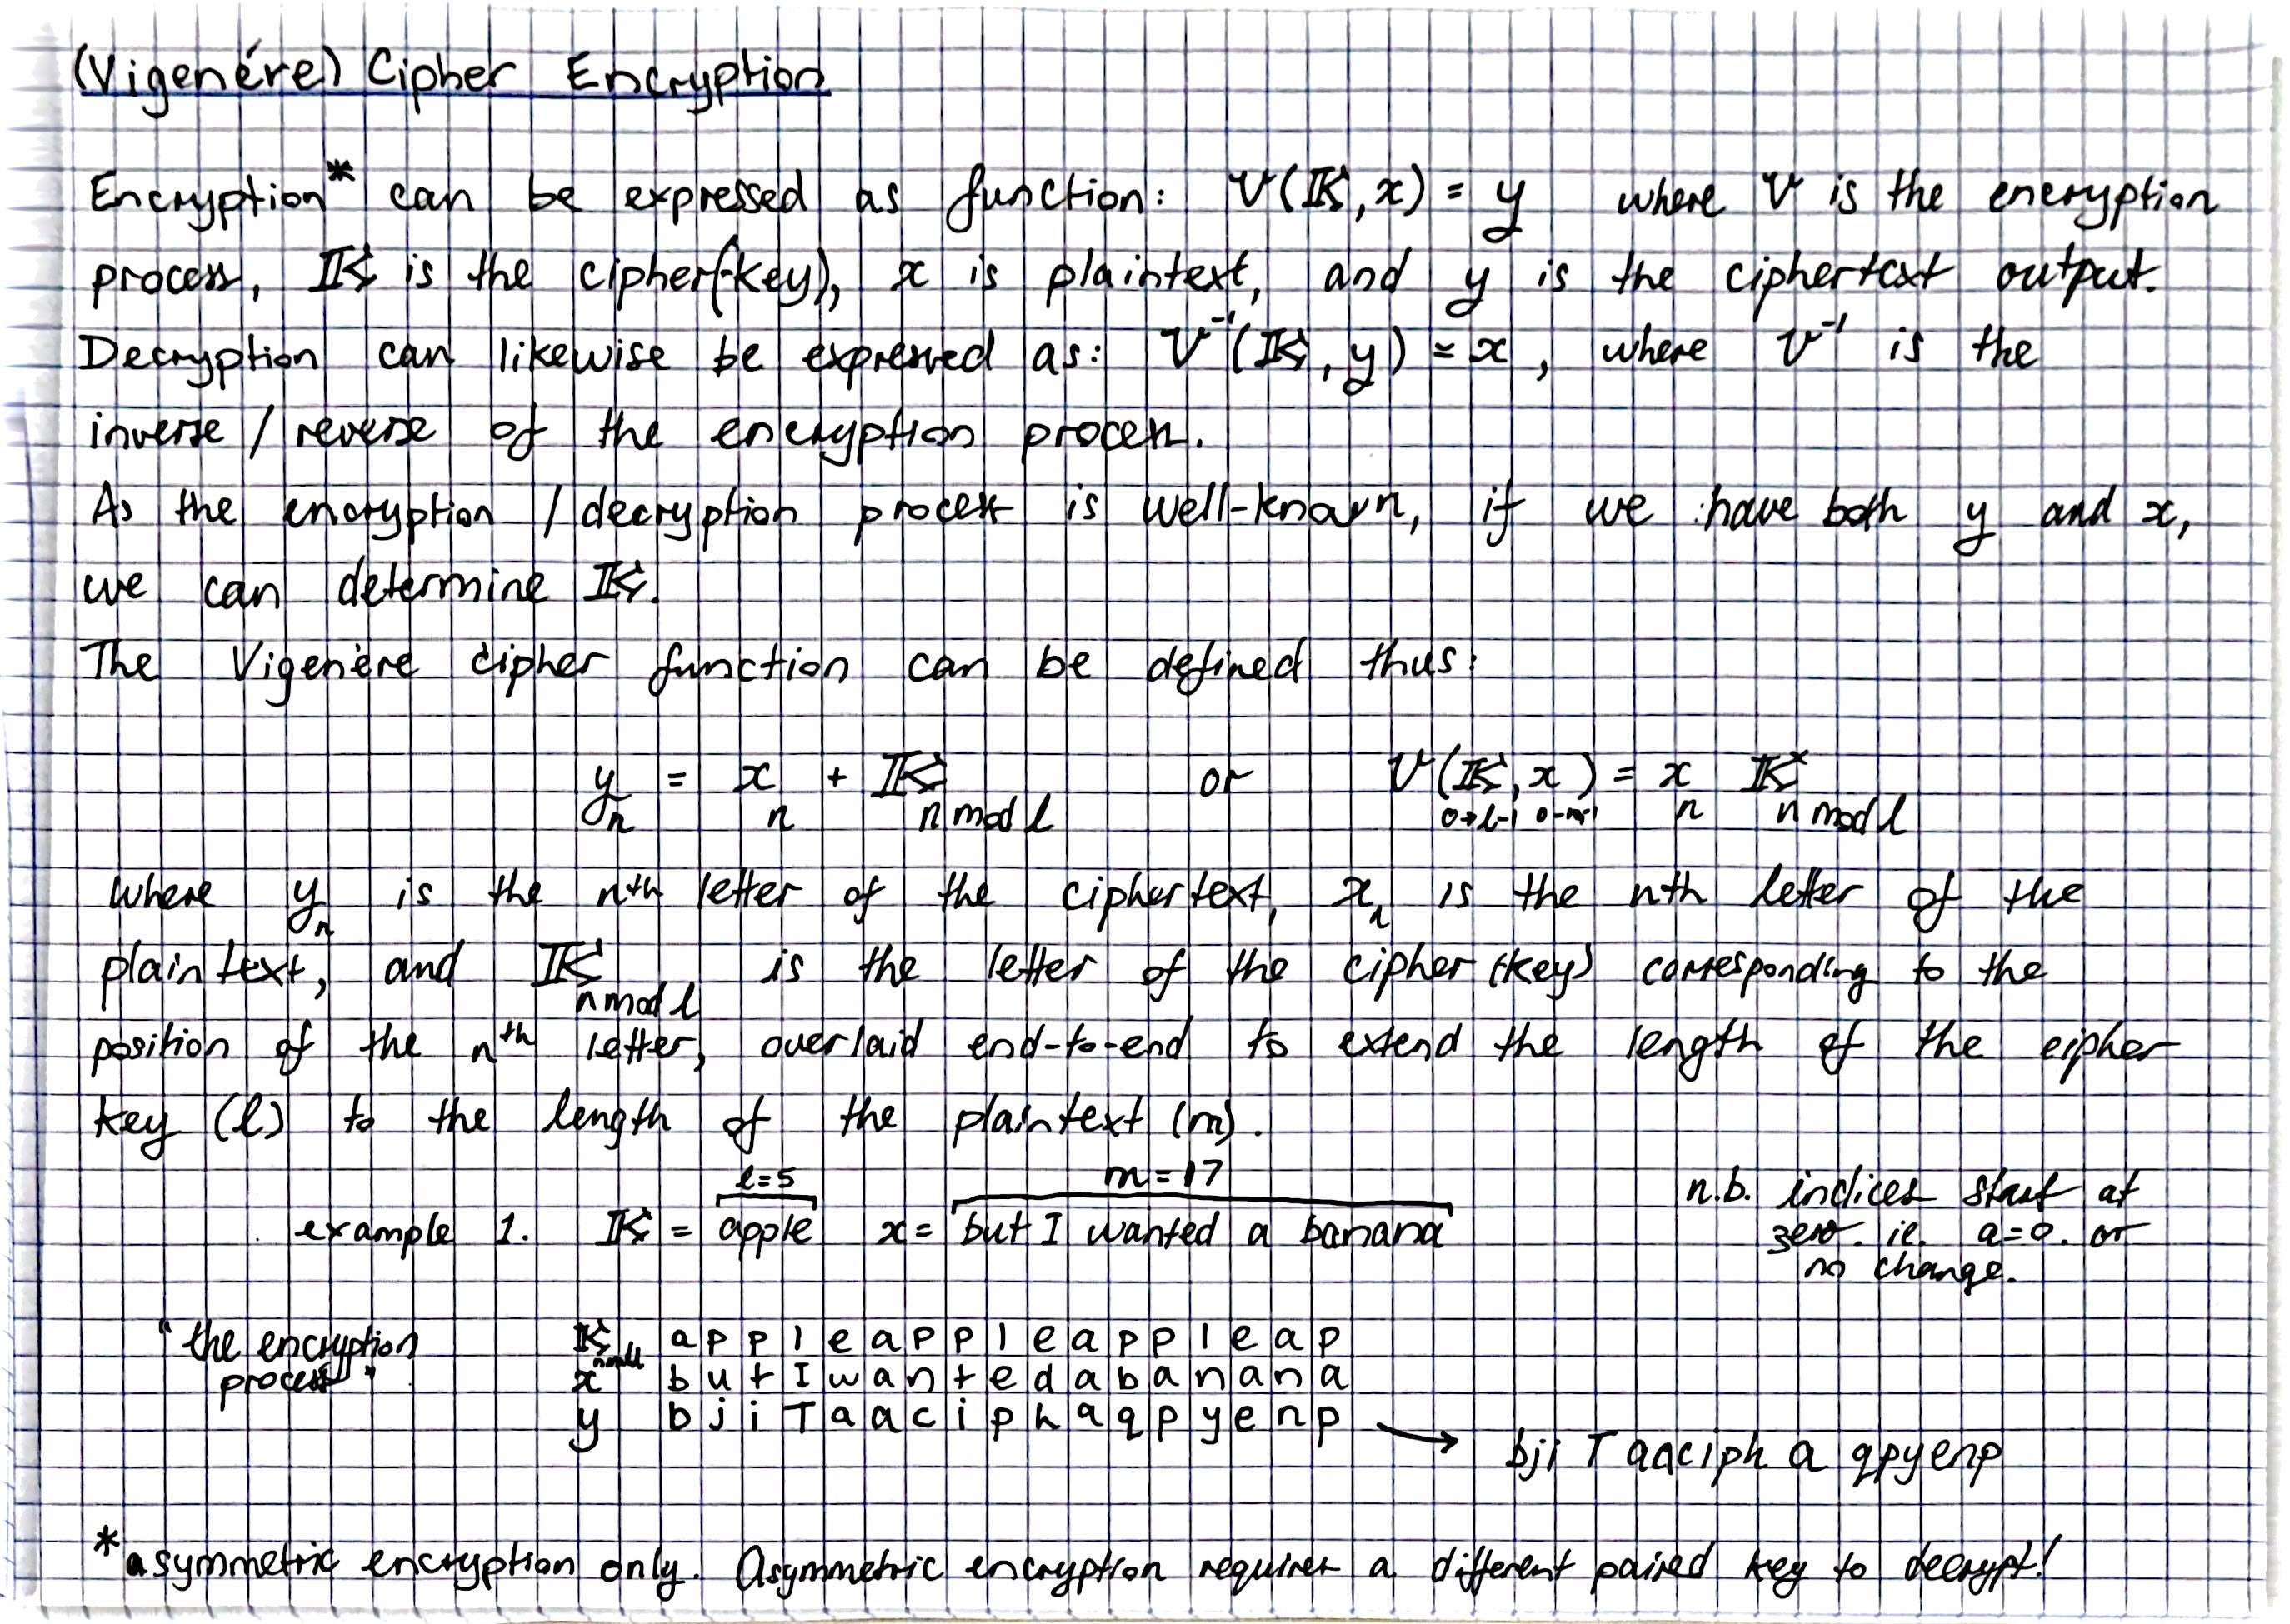 (Vigenére) Cipher Encryption
Encryption* can be expressed as function: V(𝕂, x) = y where V is the encryption
process, 𝕂 is the cipher(key), x is plaintext, and y is the ciphertext output.
Decryption can likewise be expressed as: V⁻¹(𝕂, y) = x, where V⁻¹ is the
inverse / reverse of the encryption process.
As the encryption / decryption process is well-known, if we have both y and x,
we can determine 𝕂.
The Vigenère cipher function can be defined thus:
yₙ = xₙ + 𝕂 n mod l or V(𝕂 0→l-1, x) = xₙ 𝕂 n mod l
where yₙ is the nth letter of the ciphertext, xₙ is the nth letter of the
plaintext, and 𝕂 n mod l is the letter of the cipher (key) corresponding to the
position of the nth letter, overlaid end-to-end to extend the length of the cipher
key (l) to the length of the plaintext (m).
l=5 m=17
example 1. 𝕂 = apple x = but I wanted a banana
n.b. indices start at
zero. ie. a=0. or
no change.
"the encryption
process"
𝕂 n mod l a p p l e a p p l e a p p l e a p
x b u t I w a n t e d a b a n a n a
y b j i T a a c i p h a q p y e n p
bji T aaciph a qpyenp
*asymmetric encryption only. Asymmetric encryption requires a different paired key to decrypt!